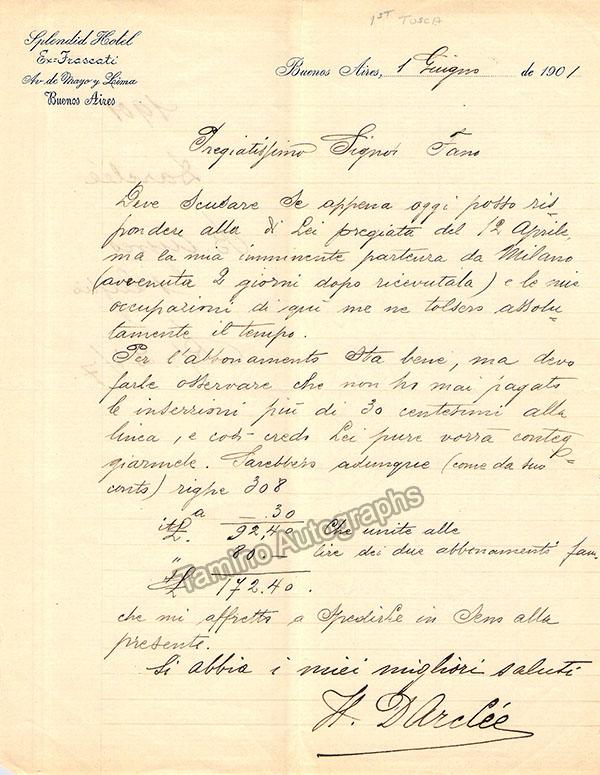 1ST TOSCA
Splendid Hotel
Ex-Frascati
Av. de Mayo y Lima
Buenos Aires
Buenos Aires, 1 Giugno de 1901
Pregiatissimo Signor Fano
Deve scusare se appena oggi posso ris-
pondere alla di Lei pregiata del 12 Aprile,
ma la mia imminente partenza da Milano
(avvenuta 2 giorni dopo ricevutala) e le mie
occupazioni di qui me ne tolsero assolu-
tamente il tempo.
Per l'abbonamento sta bene, ma devo
farle osservare che non ho mai pagato
le inserzioni più di 30 centesimi alla
linea, e così credo Lei pure vorrà conteg-
giarmele. Sarebbero adunque (come da suo
conto) righe 308
a —.30
it£. 92,40 che unite alle
" 80.— lire dei due abbonamenti fan.
it£ 172.40.
che mi affretto a spedirle in seno alla
presente.
Si abbia i miei migliori saluti
H. D'Arclée
Tamino Autographs